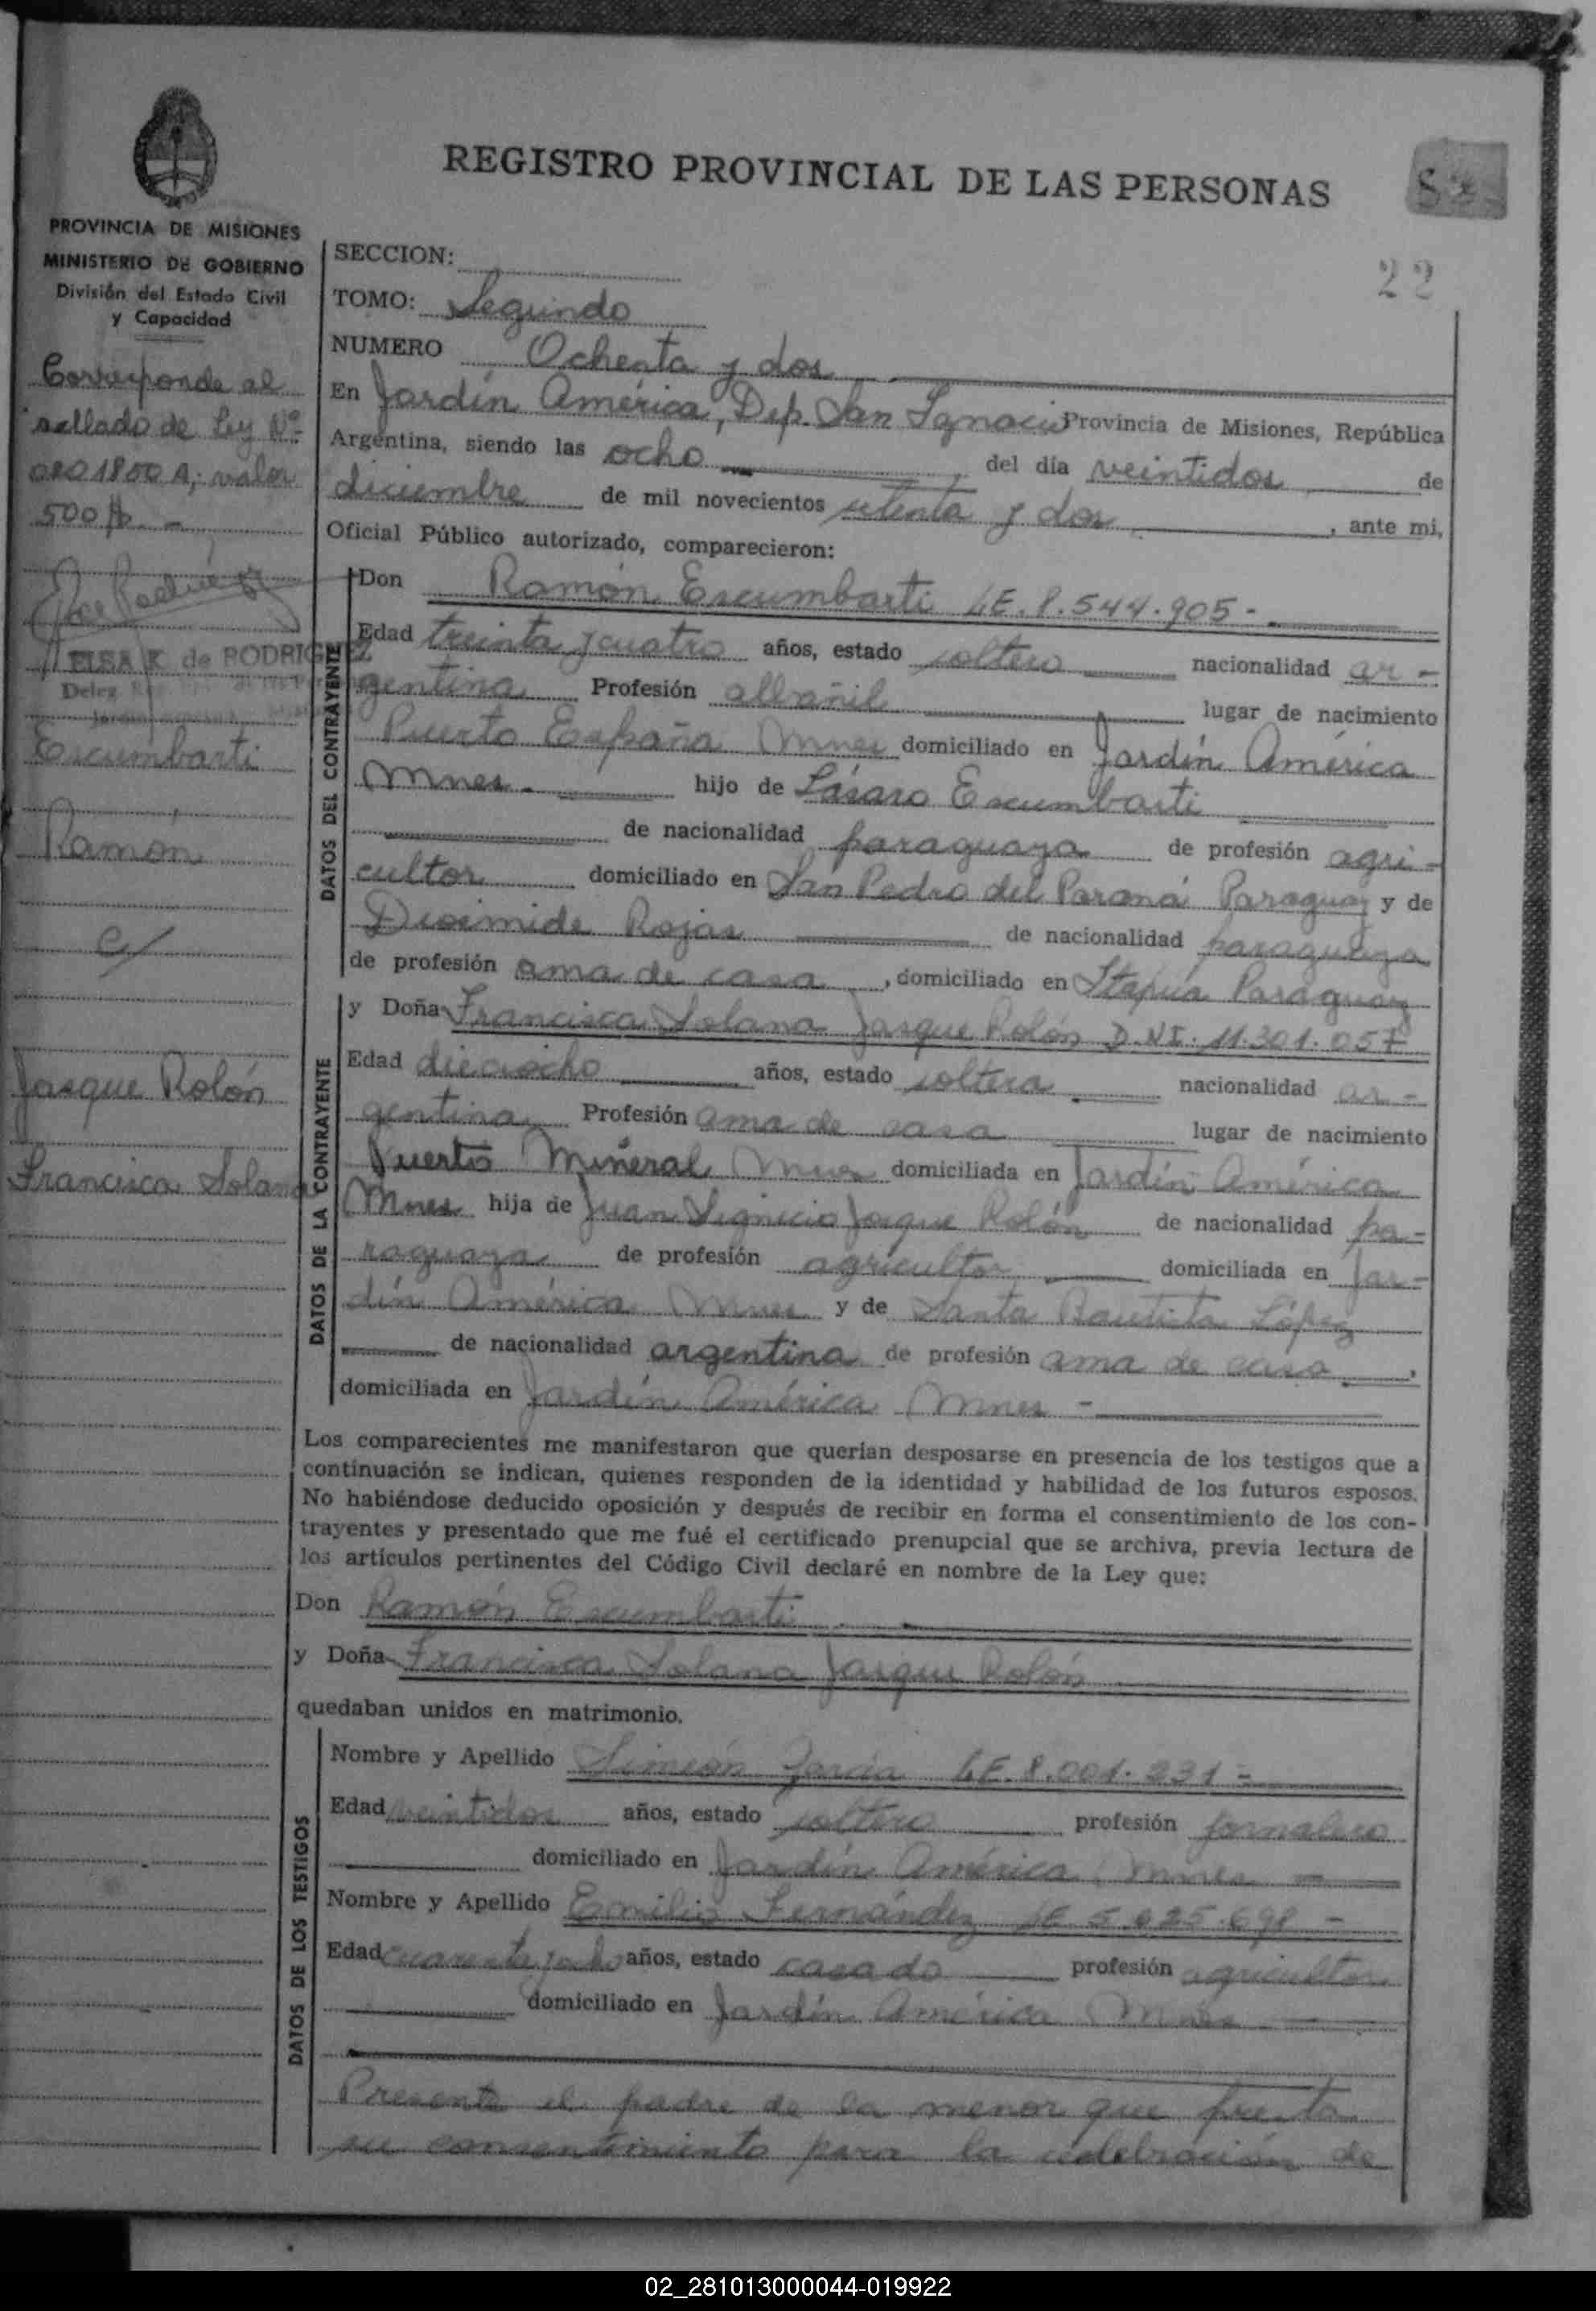 REGISTRO PROVINCIAL DE LAS PERSONAS
82
22
PROVINCIA DE MISIONES
MINISTERIO DE GOBIERNO
División del Estado Civil
y Capacidad
Corresponde al
sellado de Ley Nº
valor
500 $ -
ELSA K de RODRIGUEZ
Deleg.
Escumbarti
Ramón
c/
Jasque Rolón
Francisca Solana
SECCION:
TOMO: Segundo
NUMERO Ochenta y dos
En Jardín América, Dep. San Ignacio Provincia de Misiones, República
Argentina, siendo las ocho del día veintidos de
diciembre de mil novecientos setenta y dos, ante mi,
Oficial Público autorizado, comparecieron:
DATOS DEL CONTRAYENTE
Don Ramón Escumbarti LE. 8.544.905 -
Edad treinta y cuatro años, estado soltero nacionalidad ar-
gentina Profesión albañil lugar de nacimiento
Puerto España Mnes domiciliado en Jardín América
Mnes. hijo de Lázaro Escumbarti
de nacionalidad paraguaya de profesión agri-
cultor domiciliado en San Pedro del Paraná Paraguay y de
Rojas de nacionalidad paraguaya
de profesión ama de casa, domiciliado en Itapúa Paraguay
DATOS DE LA CONTRAYENTE
y Doña Francisca Solana Jasque Rolón D.N.I. 11.301.057
Edad dieciocho años, estado soltera nacionalidad ar-
gentina Profesión ama de casa lugar de nacimiento
Puerto Mineral Mnes domiciliada en Jardín América
Mnes hija de Juan Jasque Rolón de nacionalidad pa-
raguaya de profesión agricultor domiciliada en Jar-
dín América Mnes y de Santa Bautista López
de nacionalidad argentina de profesión ama de casa,
domiciliada en Jardín América Mnes -
Los comparecientes me manifestaron que querían desposarse en presencia de los testigos que a
continuación se indican, quienes responden de la identidad y habilidad de los futuros esposos.
No habiéndose deducido oposición y después de recibir en forma el consentimiento de los con-
trayentes y presentado que me fué el certificado prenupcial que se archiva, previa lectura de
los artículos pertinentes del Código Civil declaré en nombre de la Ley que:
Don Ramón Escumbarti
y Doña Francisca Solana Jasque Rolón
quedaban unidos en matrimonio.
DATOS DE LOS TESTIGOS
Nombre y Apellido Simeón García LE. 8.001.231 -
Edad veintidos años, estado soltero profesión jornalero
domiciliado en Jardín América Mnes -
Nombre y Apellido Emilio Fernández LE 5.625.698 -
Edad cuarenta y ocho años, estado casado profesión agricultor
domiciliado en Jardín América Mnes
Presente el padre de la menor que presta
su consentimiento para la celebración de
02_281013000044-019922